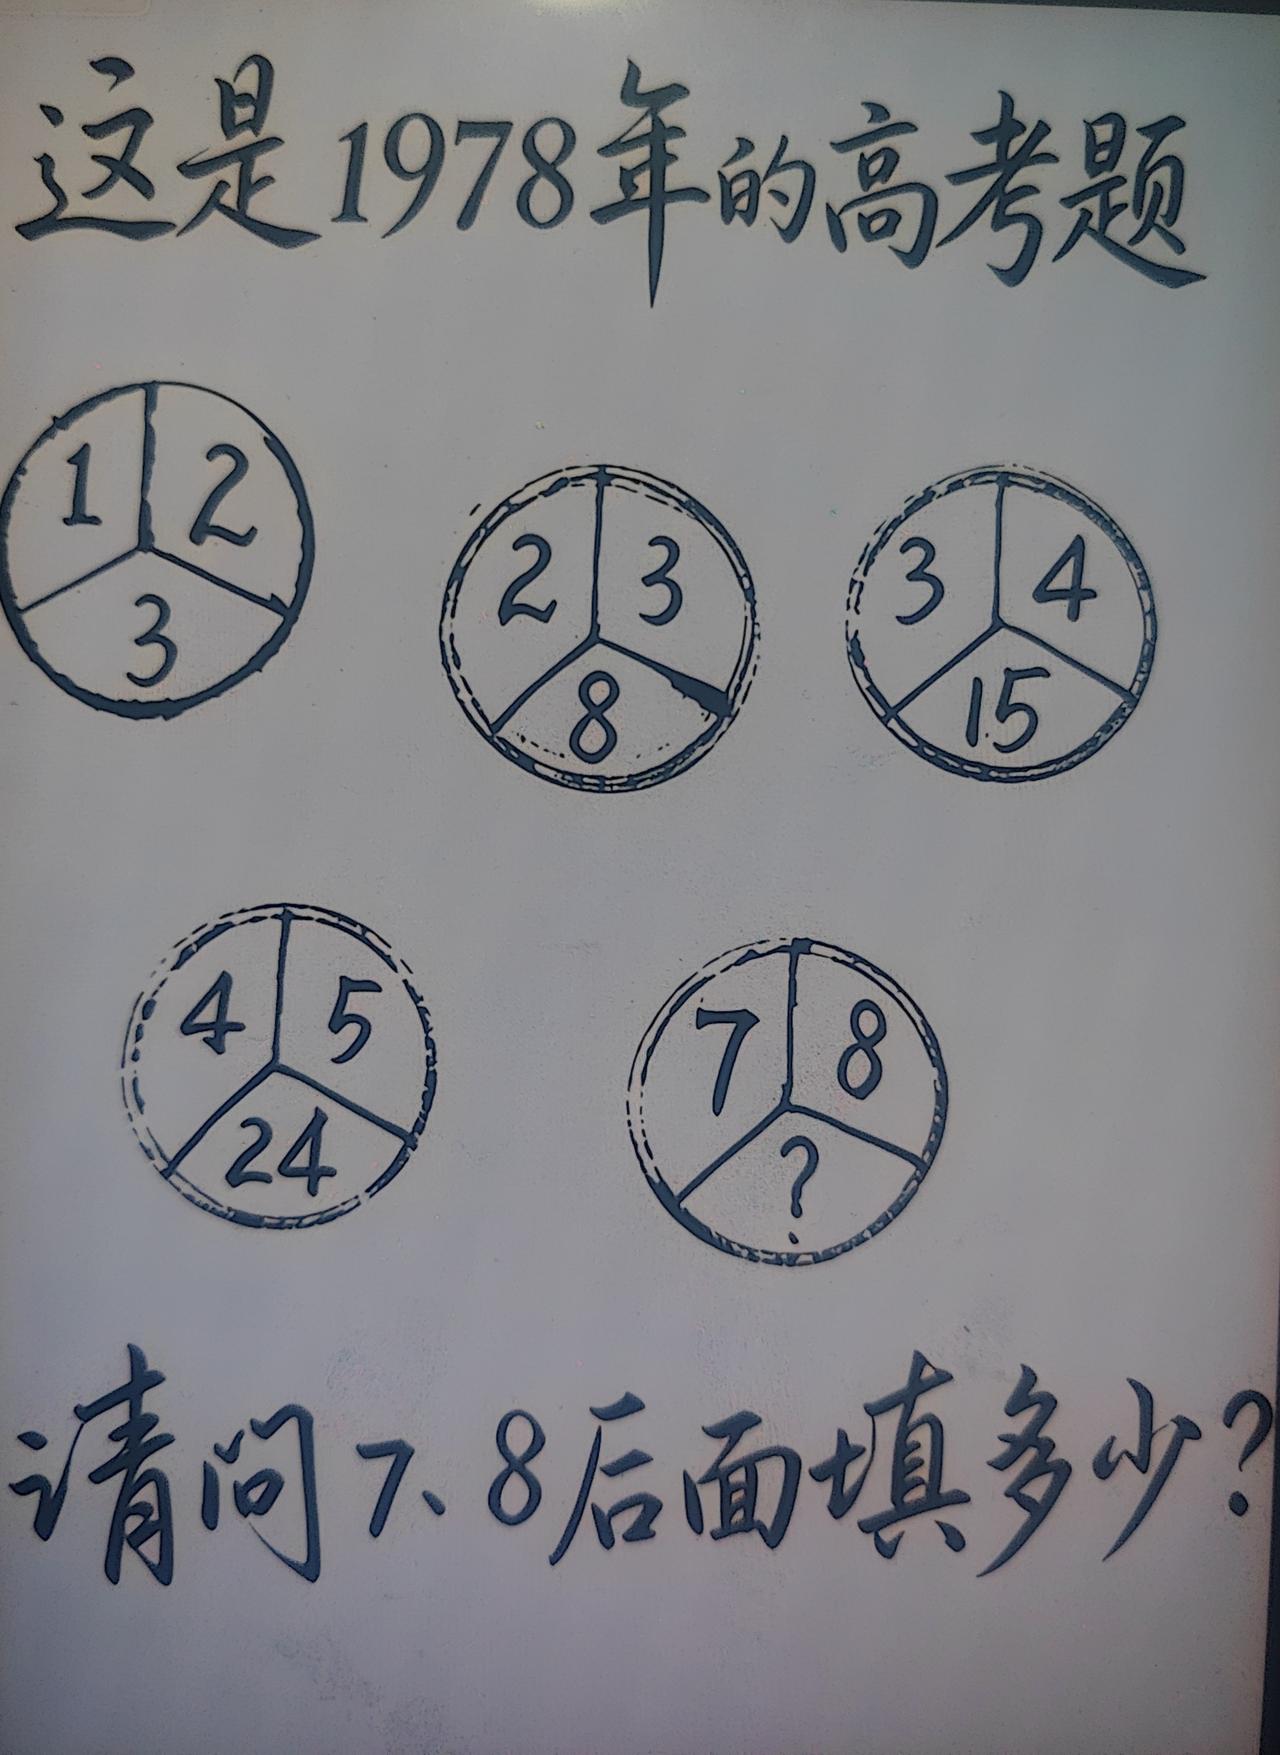 这是1978年的高考题
1 2
3
2 3
8
3 4
15
4 5
24
7 8
?
请问7、8后面填多少?